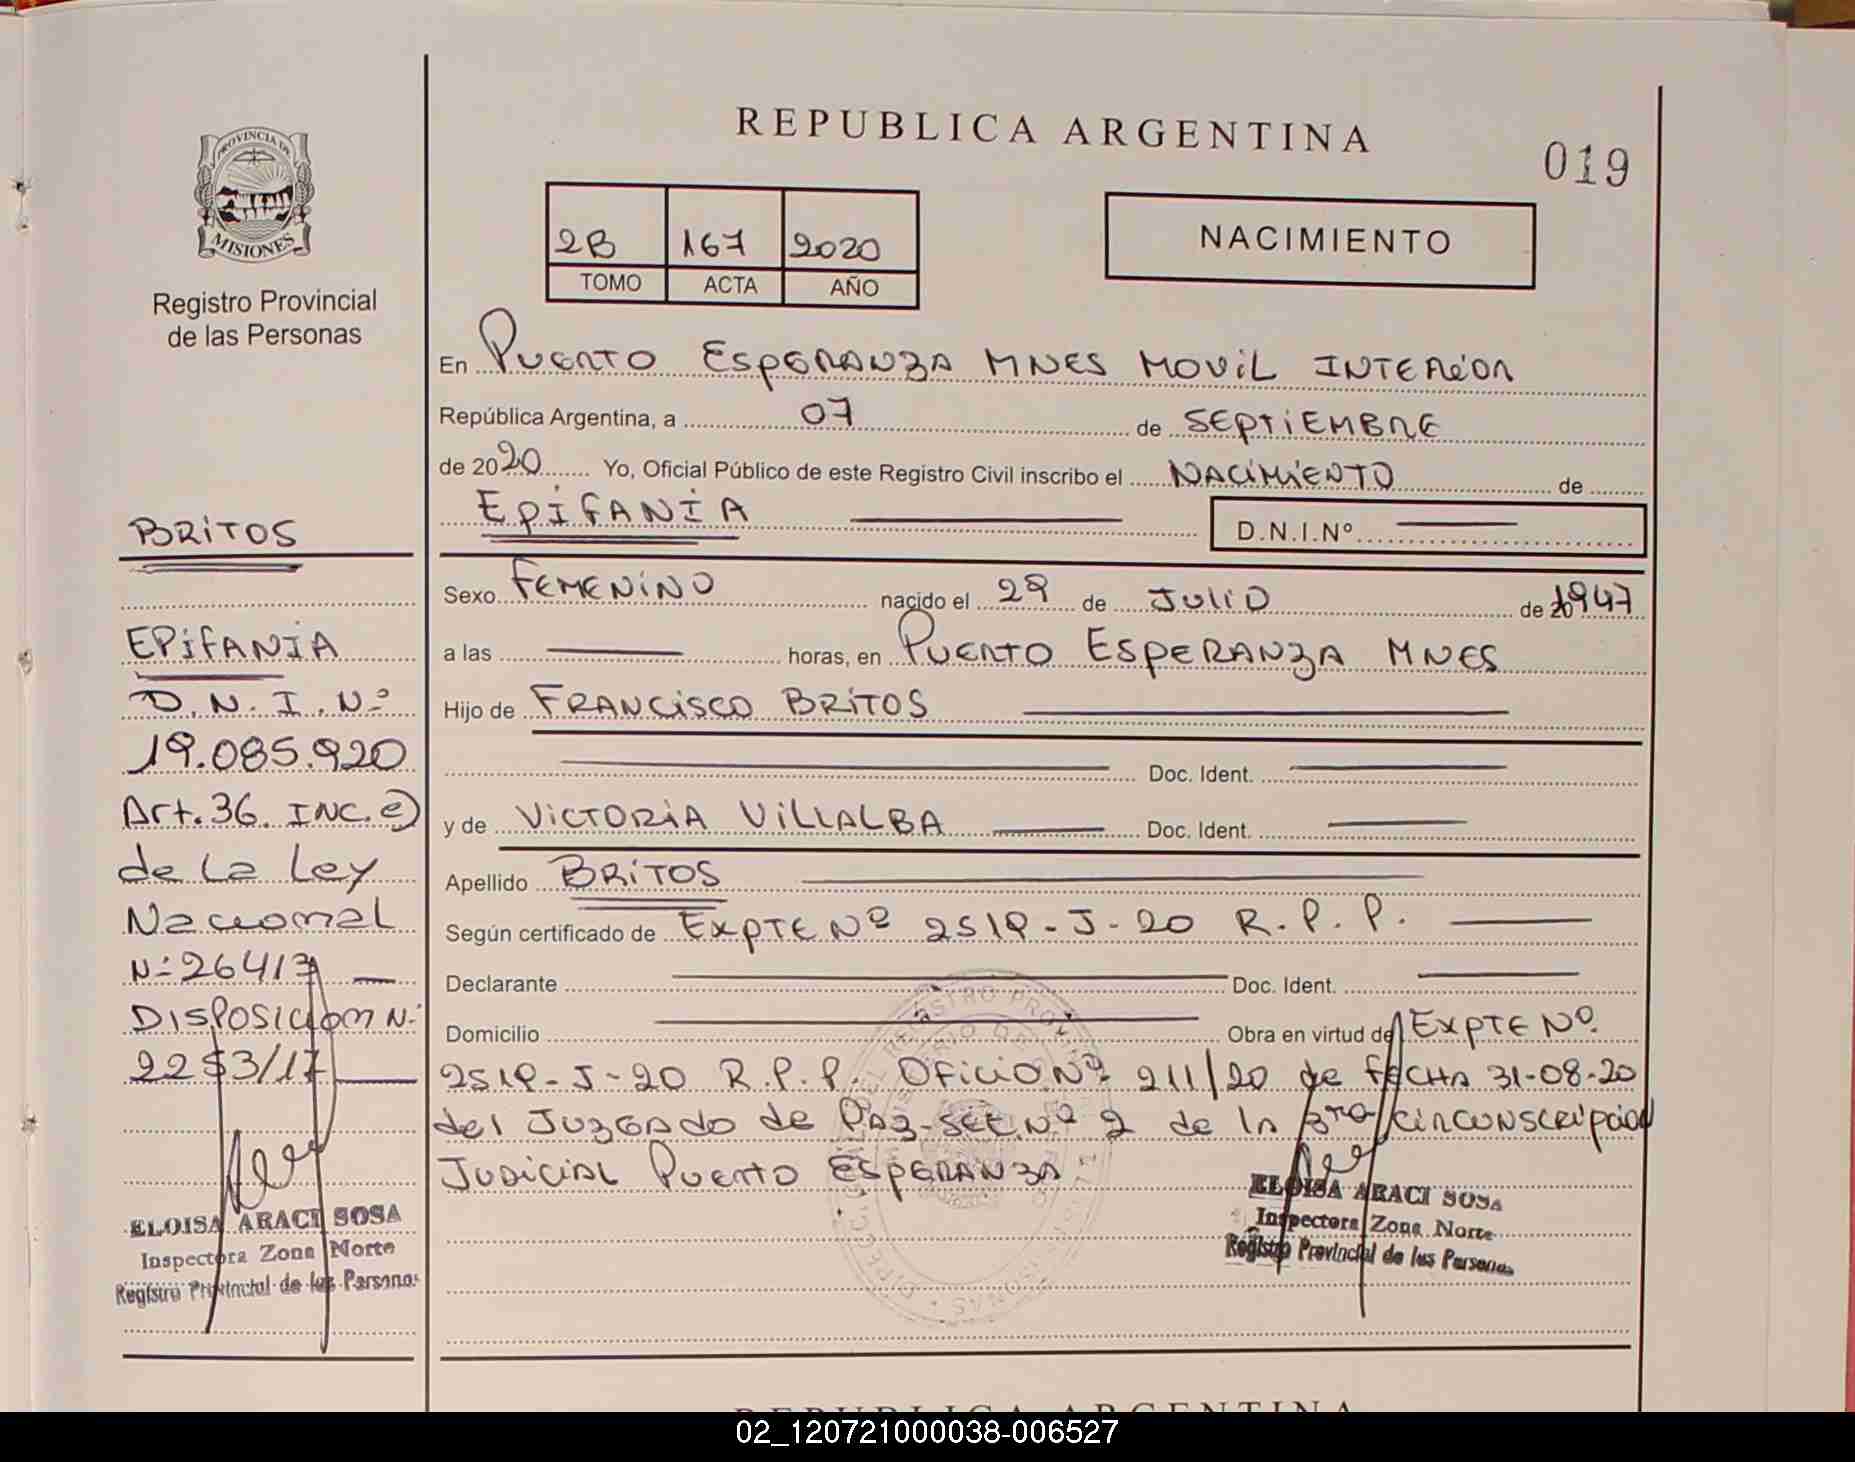 REPUBLICA ARGENTINA
019
PROVINCIA DE
MISIONES
Registro Provincial
de las Personas
2B 167 2020
TOMO ACTA AÑO
NACIMIENTO
En PUERTO ESPERANZA MNES MOVIL INTERIOR
República Argentina, a 07 de SEPTIEMBRE
de 2020 Yo, Oficial Público de este Registro Civil inscribo el NACIMIENTO de
EPIFANIA D.N.I.Nº
Sexo FEMENINO nacido el 29 de JULIO de 1947
a las horas, en PUERTO ESPERANZA MNES
Hijo de FRANCISCO BRITOS
Doc. Ident.
y de VICTORIA VILLALBA Doc. Ident.
Apellido BRITOS
Según certificado de EXPTE Nº 2519-J-20 R.P.P.
Declarante Doc. Ident.
Domicilio Obra en virtud de EXPTE Nº
2519-J-20 R.P.P. OFICIO Nº 211/20 de FECHA 31-08-20
del JUZGADO de PAZ-SEC. Nº 2 de la 3ra CIRCUNSCRIPCION
JUDICIAL PUERTO ESPERANZA
ELOISA ARACI SOSA
Inspectora Zona Norte
Registro Provincial de las Personas
BRITOS
EPIFANIA
D.N.I.Nº
19.085.920
Art.36. INC. e)
de La Ley
Nacional
Nº 26413
DISPOSICION Nº
2253/17
ELOISA ARACI SOSA
Inspectora Zona Norte
Registro Provincial de las Personas
REPUBLICA ARGENTINA
02_120721000038-006527